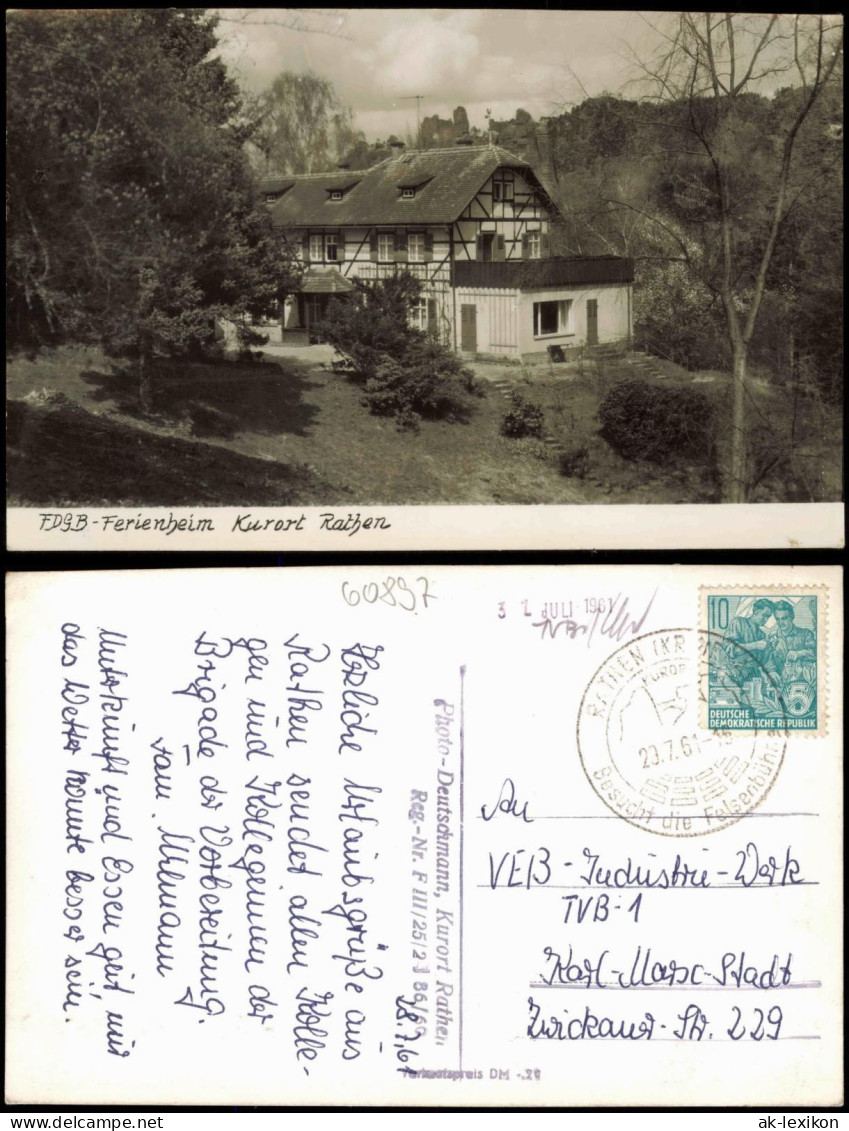 FDGB-Ferienheim Kurort Rathen
60897
3 1. JULI 1961
RATHEN (KR.
KURORT
20.7.61-
Besucht die Felsenbühne
10
5
DEUTSCHE
DEMOKRATISCHE REPUBLIK
18.7.61
Herzliche Urlaubsgrüße aus
Rathen sendet allen Kolle-
gen und Kolleginnen der
Brigade der Vorbereitung.
Fam. Uhlmann
Unterkunft und Essen gut, nur
das Wetter könnte besser sein.
Photo-Deutschmann, Kurort Rathen
Reg.-Nr. F III/25/2
Verkaufspreis DM -.20
An
VEB-Industrie-Werk
TVB-1
Karl-Marx-Stadt
Zwickauer-Str. 229
ak-lexikon